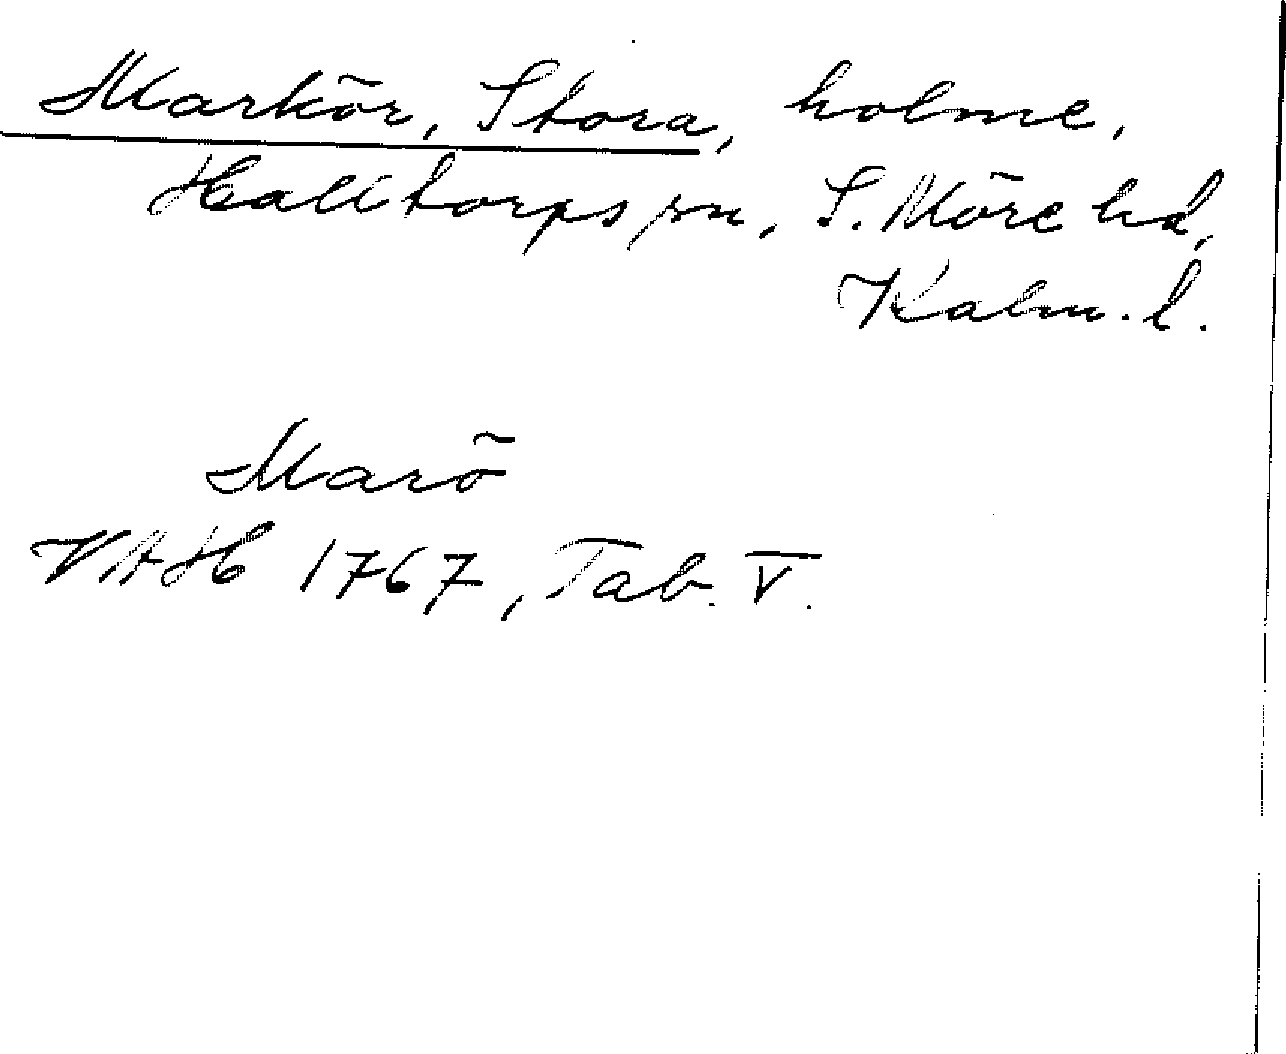 Markör, Stora, holme,
Halltorps sn, S. Möre hd,
Kalm. l.
Marö
VAH 1767, Tab. V.